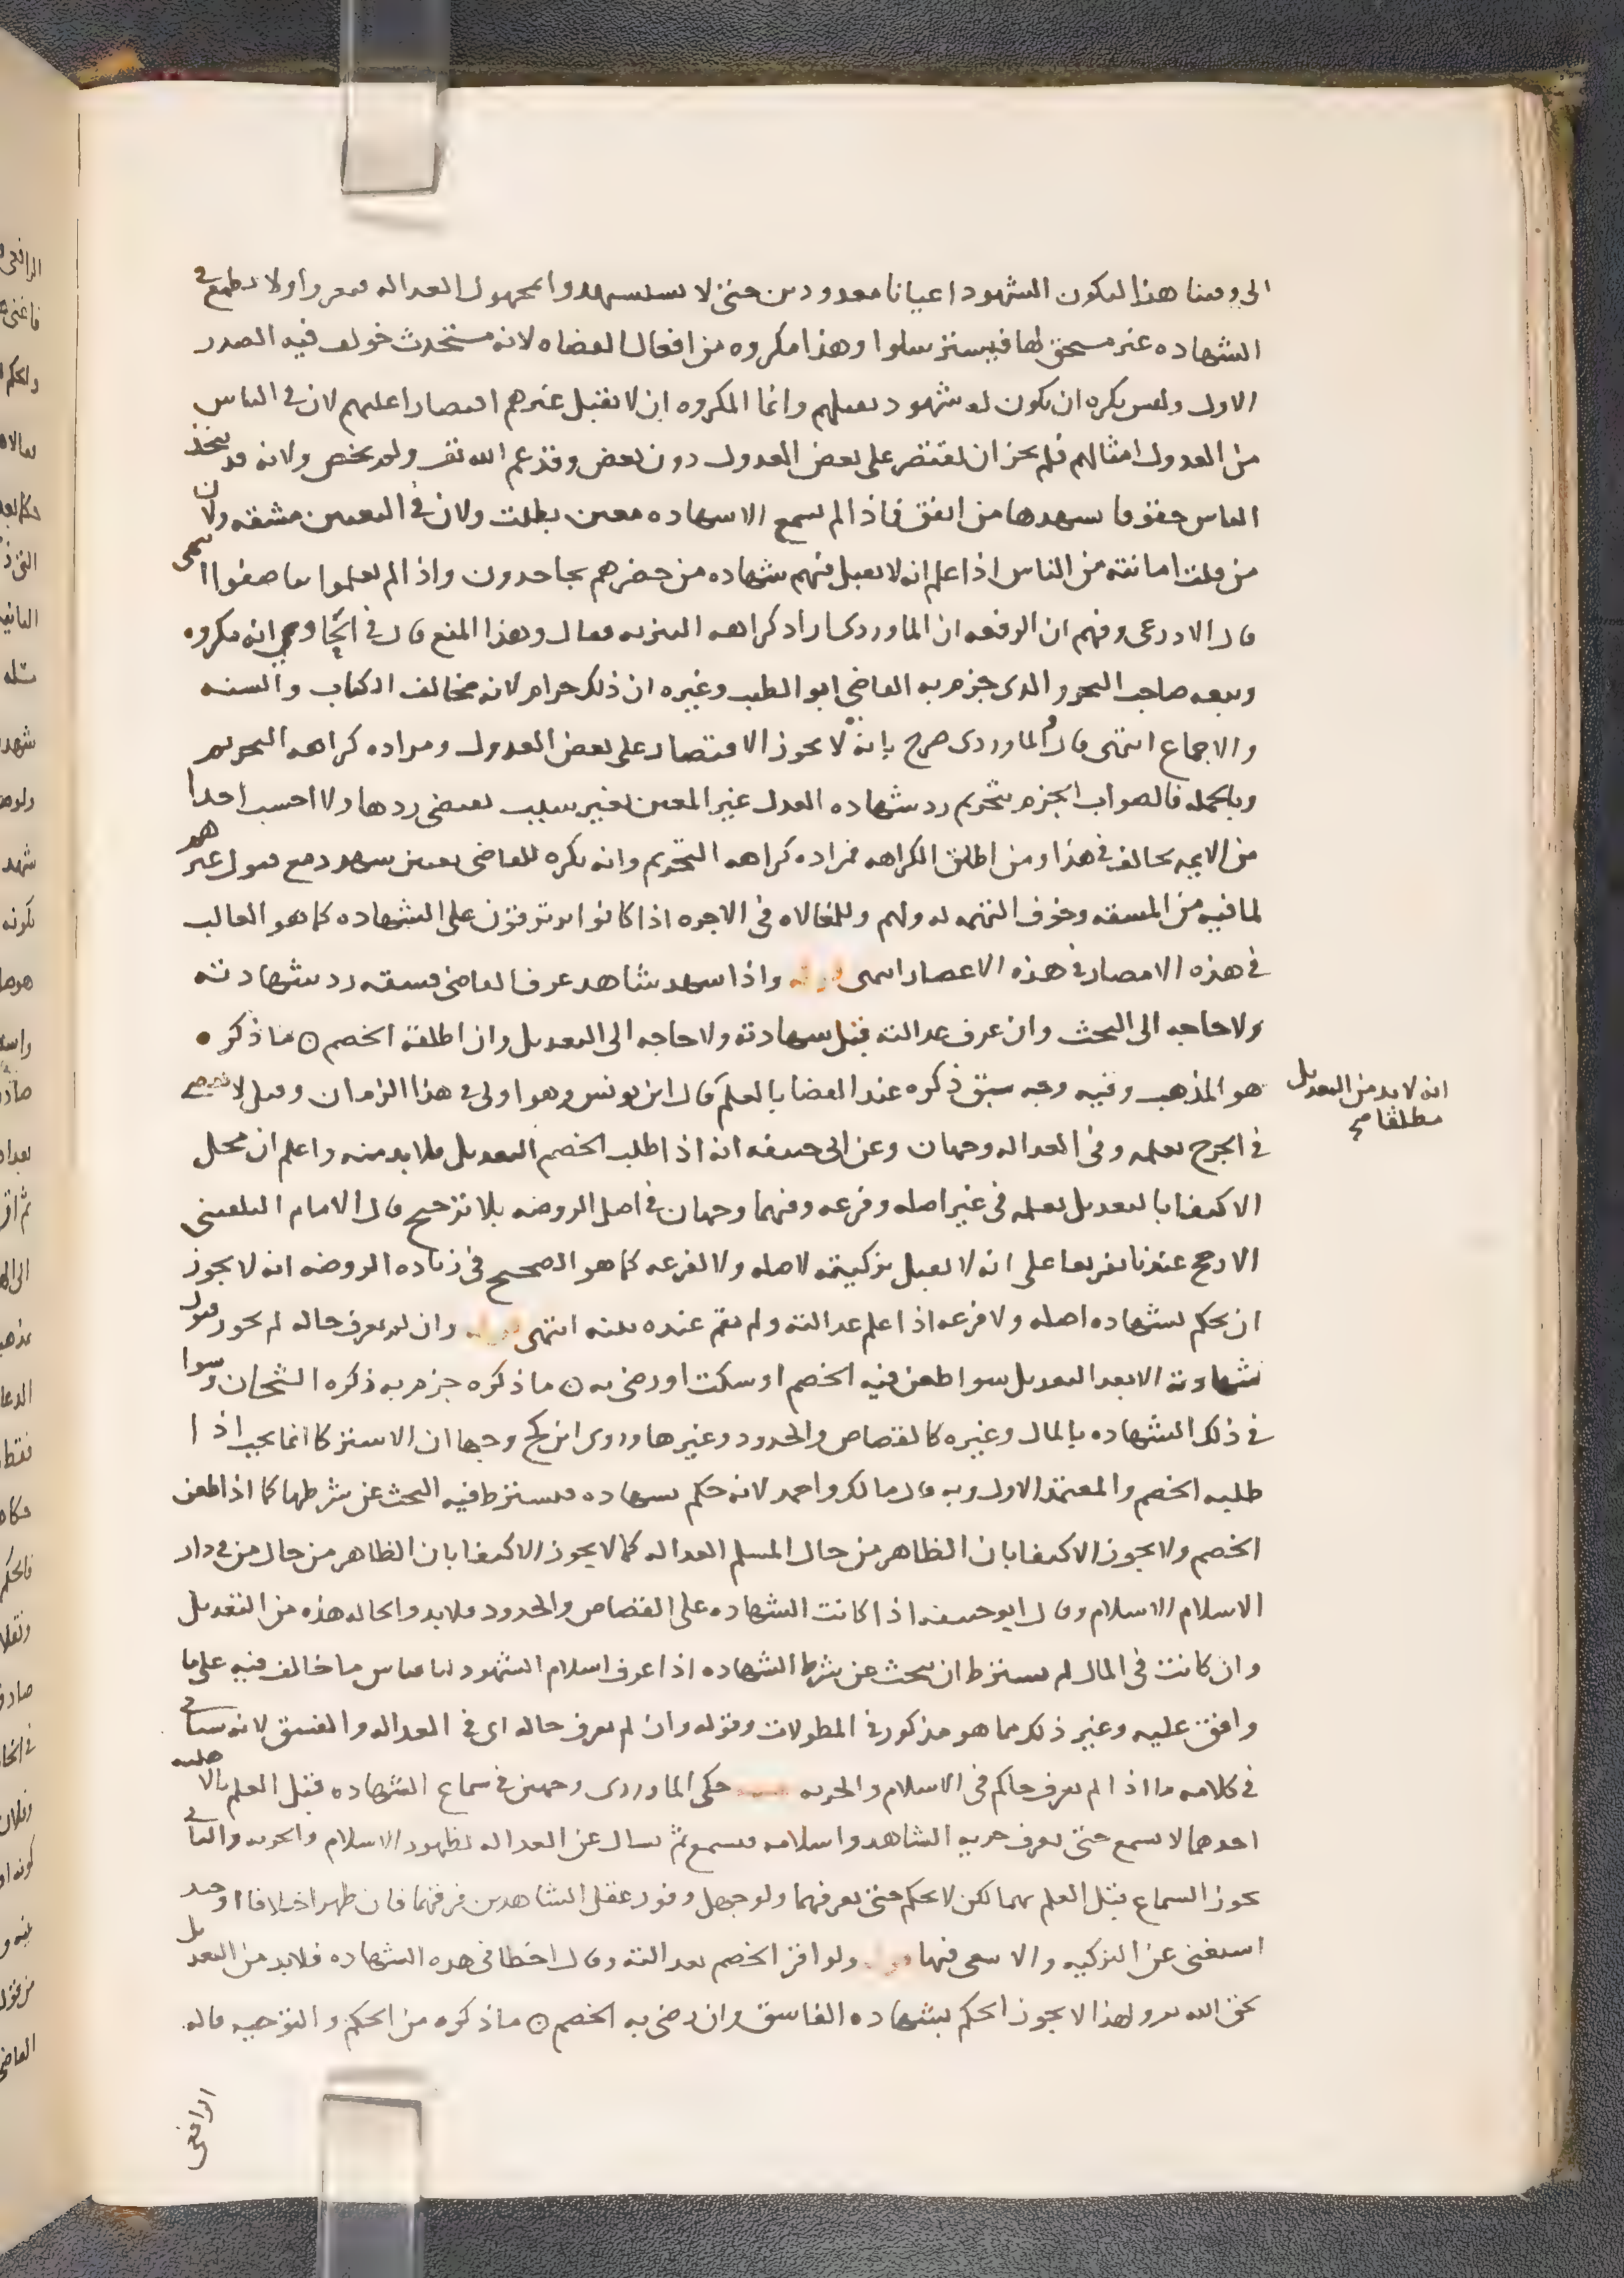 الى وقتنا هذا ليكون الشهود اعيانا معدودين حتى لا يستشهدوا مجهول العداله فيغروا ولا يطمع في
الشهاده غير مستحق لها فيسترسلوا وهذا مكروه من افعال القضاه لانه مستحدث خولف فيه الصدر
الاول وليس يكره ان يكون له شهود يقبلهم وانما المكروه ان لا يقبل غيرهم اقتصارا عليهم لان في الناس
من العدول امثالهم فلم يجز ان يقتصر على بعض العدول دون بعض وقد عم الله تعالى ولم يخص ولانه قد يتخذ
الناس حقوقا يشهدها من اتفق فاذا لم يسمع الا شهاده معين بطلت ولان في التعيين مشقه ولان
من قلت امانته من الناس اذا علم انه لا يقبل منهم شهاده من حضرهم تجاحدون واذا لم يعلموا تناصفوا انتهى
قال الاذرعي وفهم ابن الرفعه ان الماوردي اراد كراهه التنزيه فقال وهذا المنع قال في الحاوي انه مكروه
وتبعه صاحب البحر والذي جزم به القاضي ابو الطيب وغيره ان ذلك حرام لانه مخالف الكتاب والسنه
والاجماع انتهى قال والماوردي صرح بانه لا يجوز الاقتصار على بعض العدول ومراده كراهه التحريم
وبالجمله فالصواب الجزم بتحريم رد شهاده العدل غير المعين بغير سبب يقتضي ردها ولا احسب احدا
من الايمه يخالف في هذا ومن اطلق الكراهه فمراده كراهه التحريم وانه يكره للقاضي تعيين شهود مع قبول غيرهم
لما فيه من المشقه وخوف التهمه له ولهم وللمغالاه في الاجره اذا كانوا يرتزقون على الشهاده كما هو الغالب
في هذه الامصار في هذه الاعصار انتهى قوله واذا شهد شاهد عرف القاضي فسقه رد شهادته
ولا حاجه الى البحث وان عرف عدالته قبل شهادته ولا حاجه الى التعديل وان اطلقه الخصم ما ذكره
هو المذهب وفيه وجه سبق ذكره عند القضا بالعلم قال ابن يونس وهو اولى في هذا الزمان وقيل لا
انه لا بد من التعديل
مطلقا صح
في الجرح بعلمه وفي العداله وجهان وعن ابي حنيفه انه اذا طلب الخصم التعديل فلا بد منه واعلم ان محل
الاكتفا بالتعديل بعلمه في غير اصله وفرعه وفيهما وجهان في اصل الروضه بلا ترجيح قال الامام البلقيني
الارجح عندنا تفريعا على انه لا يقبل تزكيته لاصله ولا لفرعه كما هو الصحيح في زياده الروضه انه لا يجوز
ان يحكم بشهاده اصله ولا فرعه اذا علم عدالته ولم تقم عنده بينه انتهى قوله وان لم يعرف حاله لم يجز قبول
شهادته الا بعد التعديل سوا طعن فيه الخصم او سكت او رضي به ما ذكره جزم به ذكره الشيخان وسوا
في ذلك الشهاده بالمال وغيره كالقصاص والحدود وغيرها وروى ابن كج وجها ان الاستزكا انما يجب اذا
طلبه الخصم والمعتمد الاول وبه قال مالك واحمد لانه حكم بشهاده فيشترط فيه البحث عن شرطها كما اذا طعن
الخصم ولا يجوز الاكتفا بان الظاهر من حال المسلم العداله كما لا يجوز الاكتفا بان الظاهر من حال من في دار
الاسلام الاسلام وقال ابو حنيفه اذا كانت الشهاده على القصاص والحدود فلا بد والحاله هذه من التعديل
وان كانت في المال لم يشترط ان يبحث عن شرط الشهاده اذا عرف اسلام الشهود لنا قياس ما خالف فيه على ما
وافق عليه وغير ذلك مما هو مذكور في المطولات وقوله وان لم يعرف حاله اي في العداله والفسق لانه سياتي
في كلامه ما اذا لم يعرف حاكم في الاسلام والحريه حكى الماوردي وجهين في سماع الشهاده قبل العلم بالاهليه
احدهما لا يسمع حتى يعرف حريه الشاهد واسلامه فيسمع ثم يسال عن العداله لظهور الاسلام والحريه والثاني
يجوز السماع قبل العلم بهما لكن لا يحكم حتى يعرفهما ولو جهل وفور عقل الشاهدين فرقهما فان ظهر اختلافا او جبه
استغنى عن التزكيه والا سعى فيها قوله ولو اقر الخصم بعدالته وقال اخطا في هذه الشهاده فلا بد من التعديل
لحق الله تعالى ولهذا لا يجوز الحكم بشهاده الفاسق وان رضي به الخصم ما ذكره من الحكم والتوجيه قاله
الرافعي